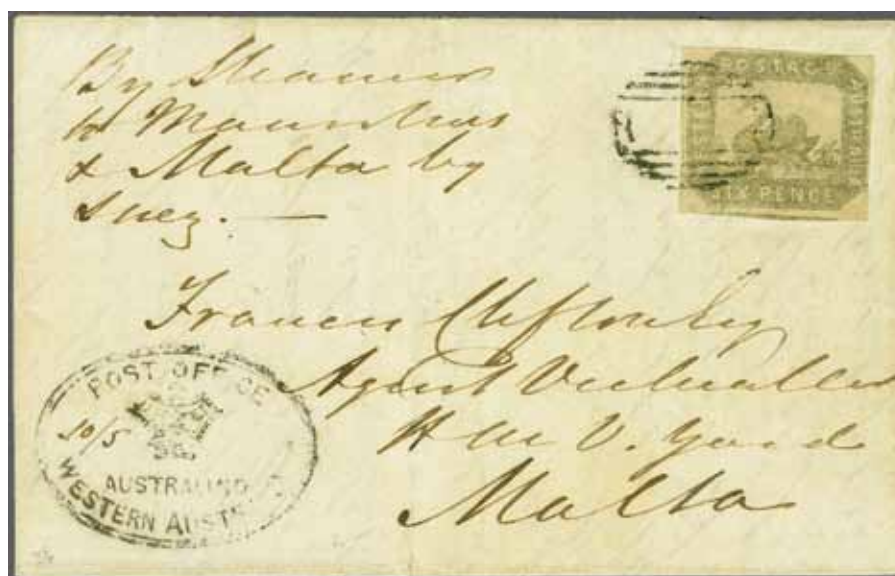 By Steamer
to Mauritius
& Malta by
Suez. —
POSTAGE
SIX PENCE
Francis Clifton Esq
Agent Victualler
H M V. Yard
Malta
POST OFFICE
20/5
AUSTRALIND
WESTERN AUST